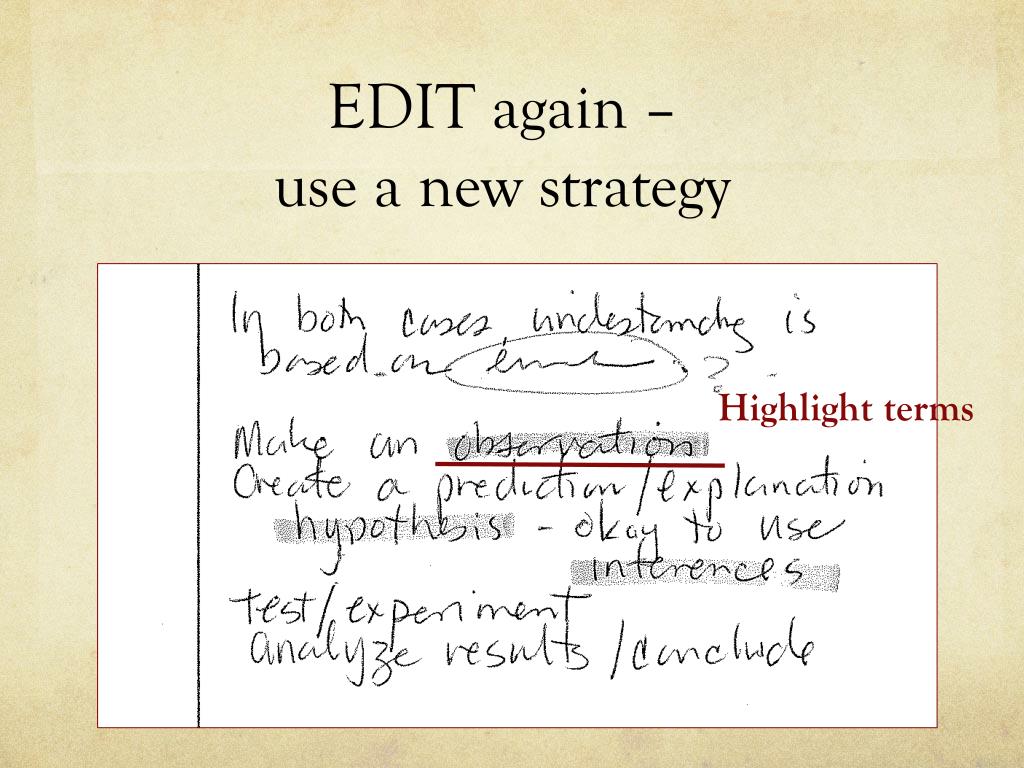 EDIT again –
use a new strategy
In both cases understanding is
based on ?
Highlight terms
Make an observation
Create a prediction/explanation
hypothesis - okay to use
inferences
test/experiment
analyze results/conclude